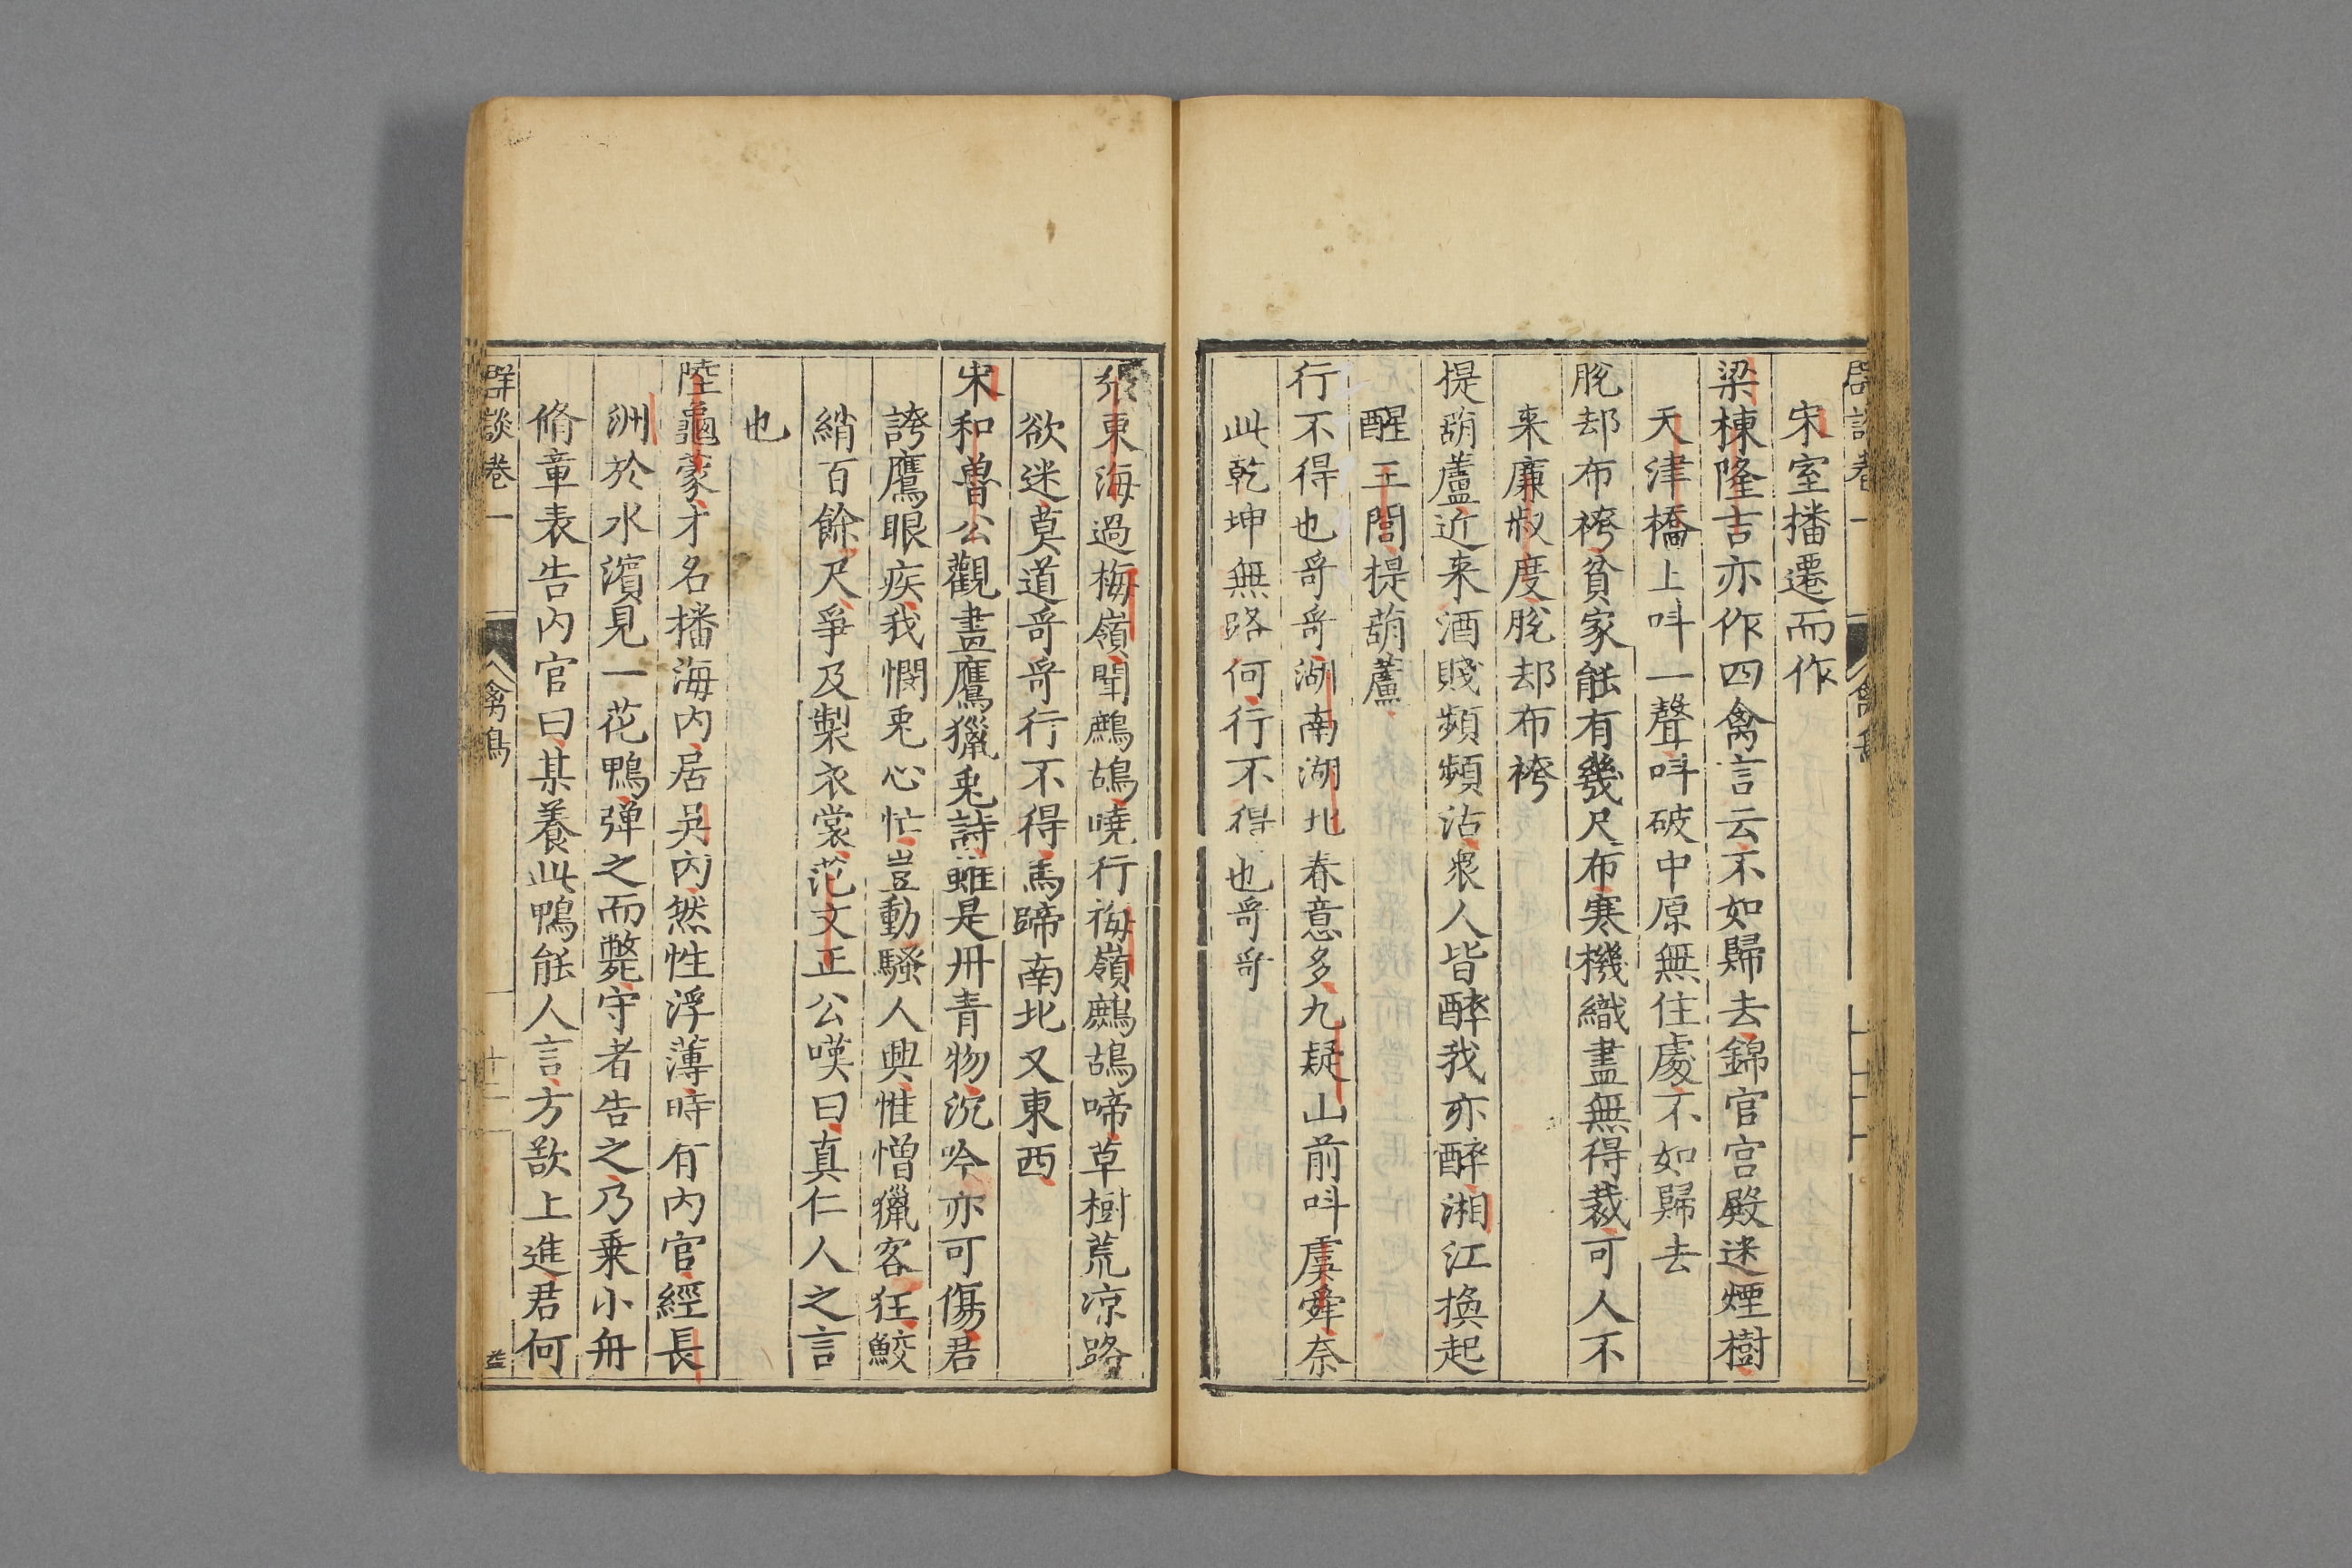 群談卷一
禽鳥
宋室播遷而作
梁棟隆吉亦作四禽言云不如歸去錦官宮殿迷煙樹
天津橋上呌一聲呌破中原無住處不如歸去
脫却布袴貧家能有幾尺布寒機織盡無得裁可人不
来廉叔度脫却布袴
提葫蘆近来酒賤頻頻沽衆人皆醉我亦醉湘江換起
醒王閭提葫蘆
行不得也哥哥湖南湖北春意多九疑山前呌虞舜奈
此乾坤無路何行不得也哥哥
張東海過梅嶺聞鷓鴣曉行梅嶺鷓鴣啼草樹荒凉路
欲迷莫道哥哥行不得馬蹄南北又東西
宋和魯公觀畫鷹獵兎詩雖是丹青物沉吟亦可傷君
誇鷹眼疾我憫兎心忙豈動騷人興惟憎獵客狂鮫
綃百餘尺爭及製衣裳范文正公嘆曰真仁人之言
也
陸龜蒙才名播海內居吳內然性浮薄時有內官經長
洲於水濱見一花鴨彈之而斃守者告之乃乗小舟
脩章表告內官曰某養此鴨能人言方欲上進君何
群談卷一
禽鳥
十二